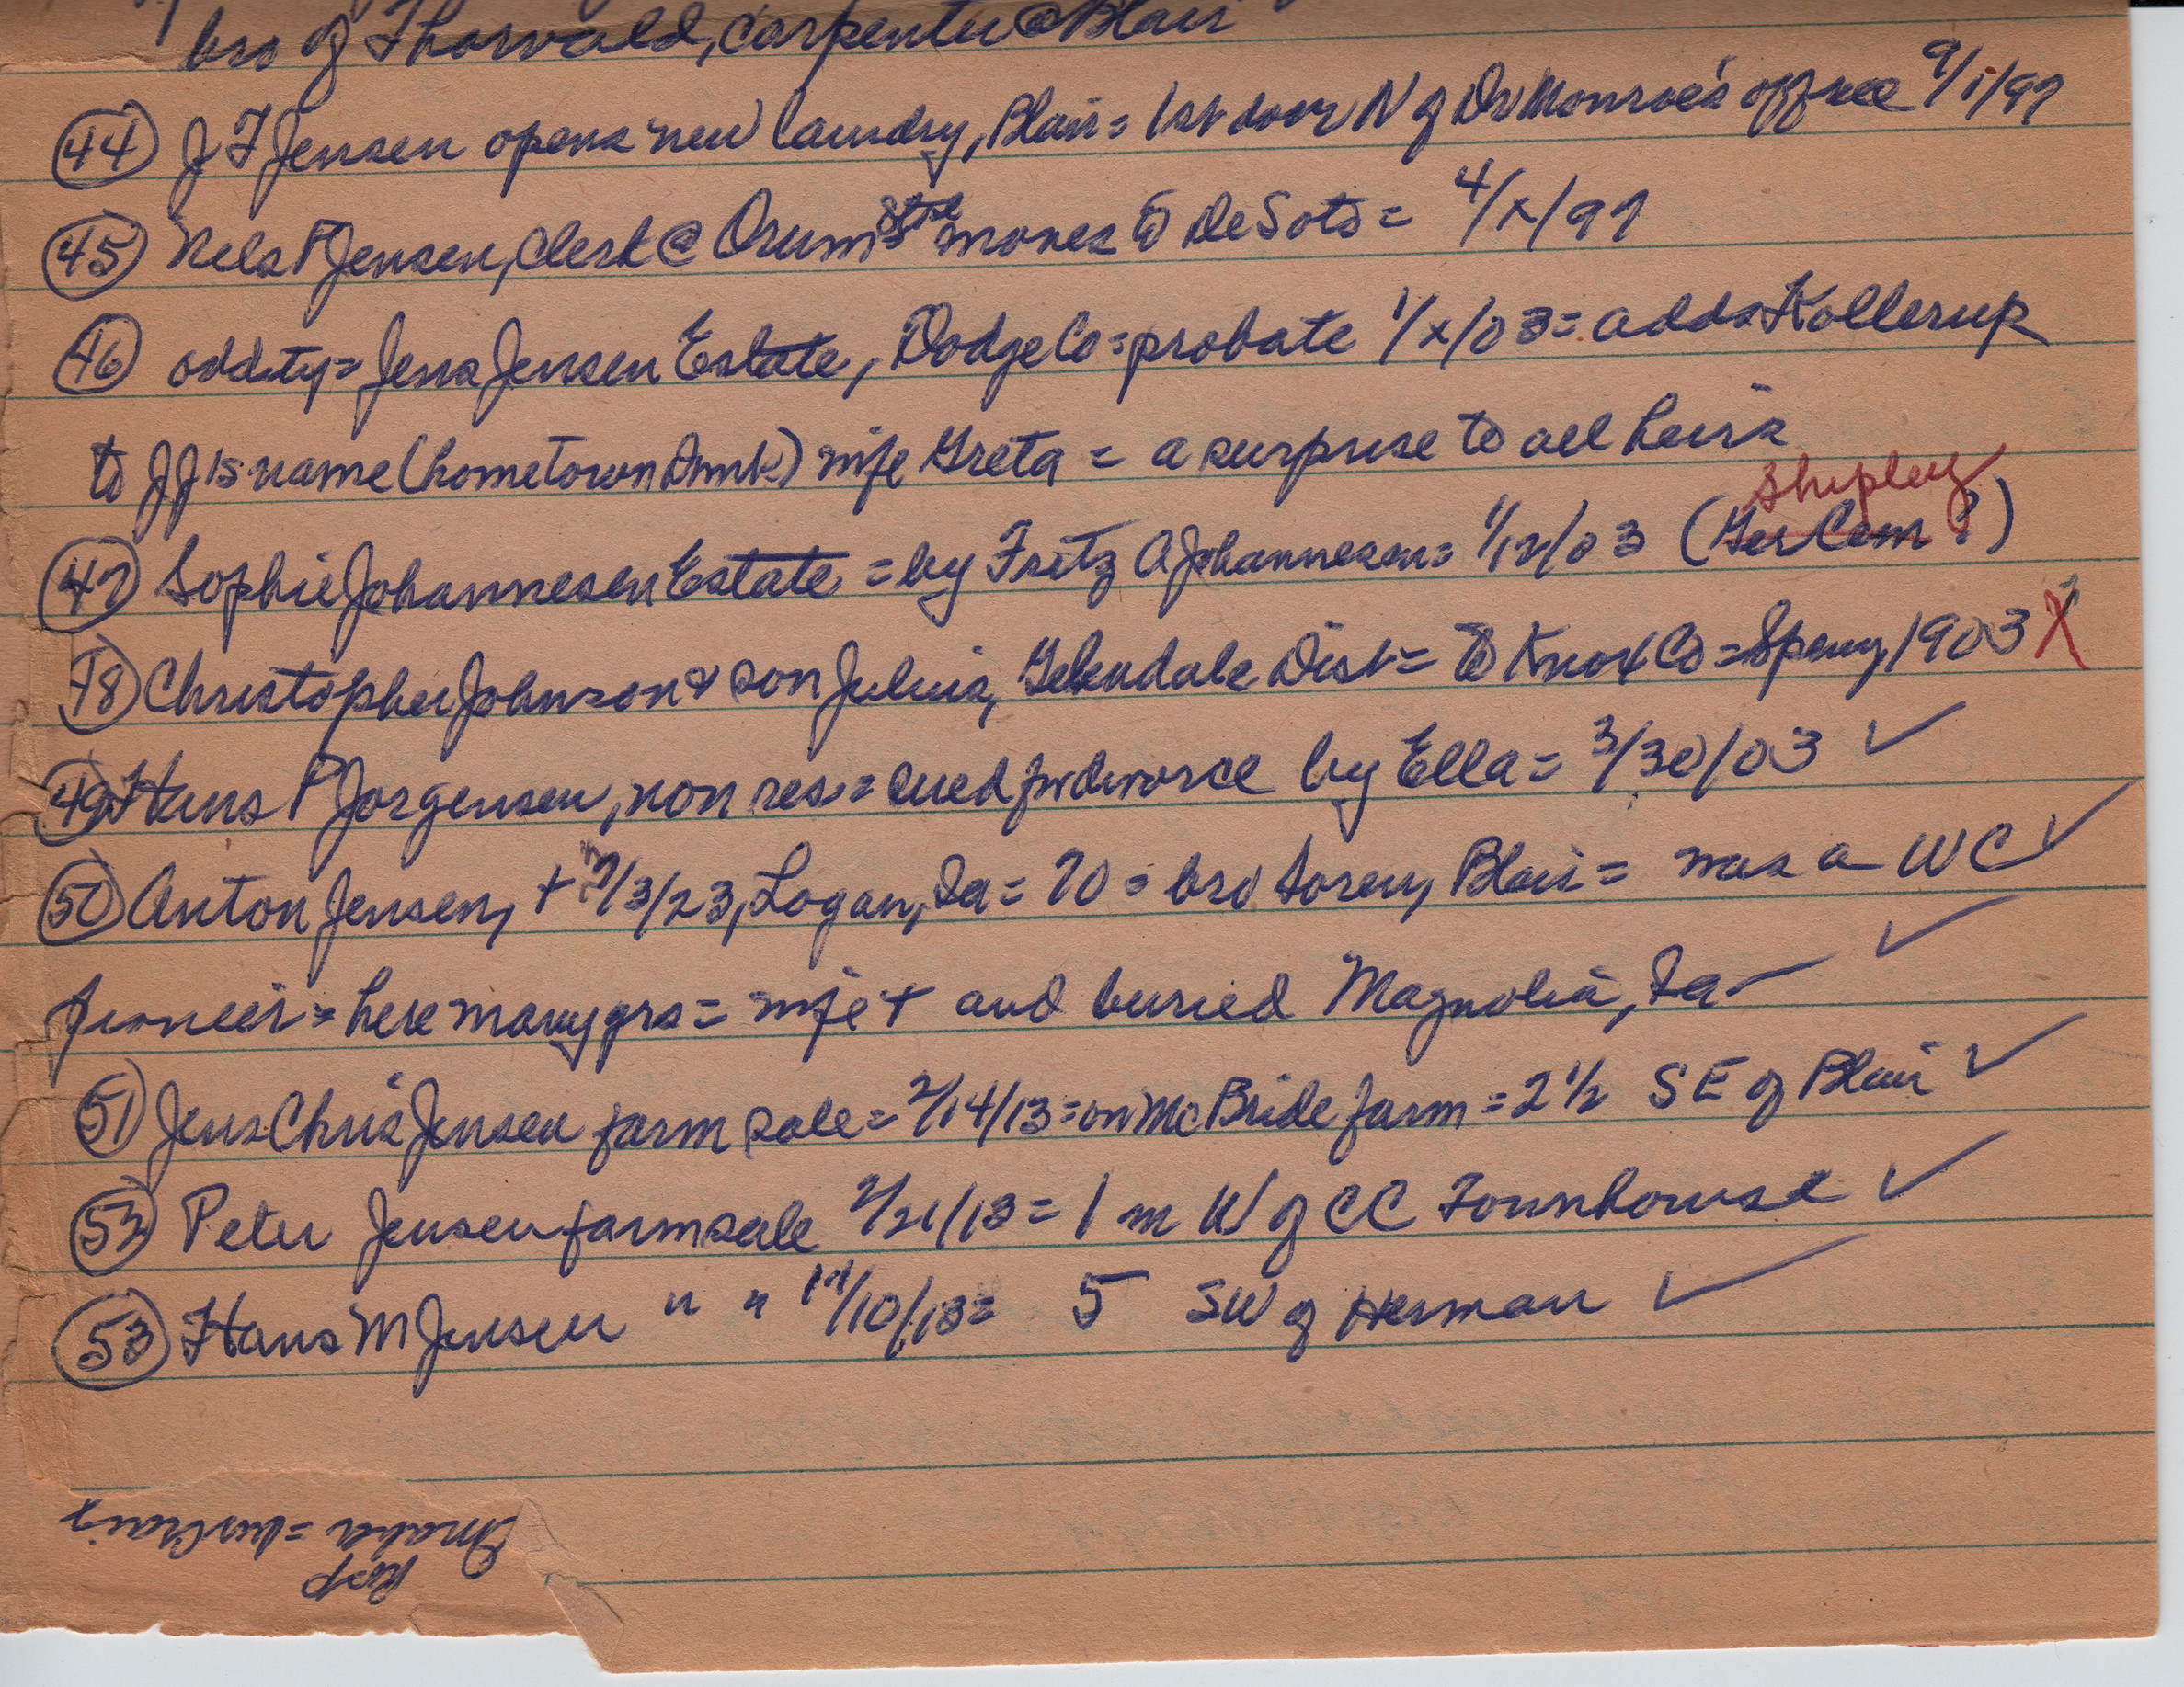 bro of Thorvald, carpenter @ Blair
(44) J F Jensen opens new laundry, Blair = 1st door N of Dr Monroe's office 9/1/97
(45) Nels P Jensen, clerk @ Orum Store moves to De Soto = 4/x/97
(46) oddity = Jens Jensen Estate, Dodge Co = probate 1/x/03 = adds Kollerup
to JJ's name (hometown Dnmk) wife Greta = a surprise to all heirs
Shipley
(47) Sophie Johannesen Estate = by Fritz A Johannesen = 1/12/03 (Ger Cem?)
(48) Christopher Johnson & son Julius, Dist = to Knox Co = Spring 1903 X
(49) Hans P Jorgensen, non res = sued for divorce by Ella = 3/30/03 ✓
(50) Anton Jensen, + /3/23, Logan, Ia = 70 = bro Soren, Blair = was a WC ✓
pioneer = here many yrs = wife + and buried Magnolia, Ia — ✓
(51) Jens Chris Jensen farm sale = 2/14/13 = on McBride farm = 2 1/2 SE of Blair ✓
(52) Peter Jensen farm sale 2/21/13 = 1 m W of CC Townhouse ✓
(53) Hans M Jensen " " /10/13 = 5 SW of Herman ✓
Omaha = Craig